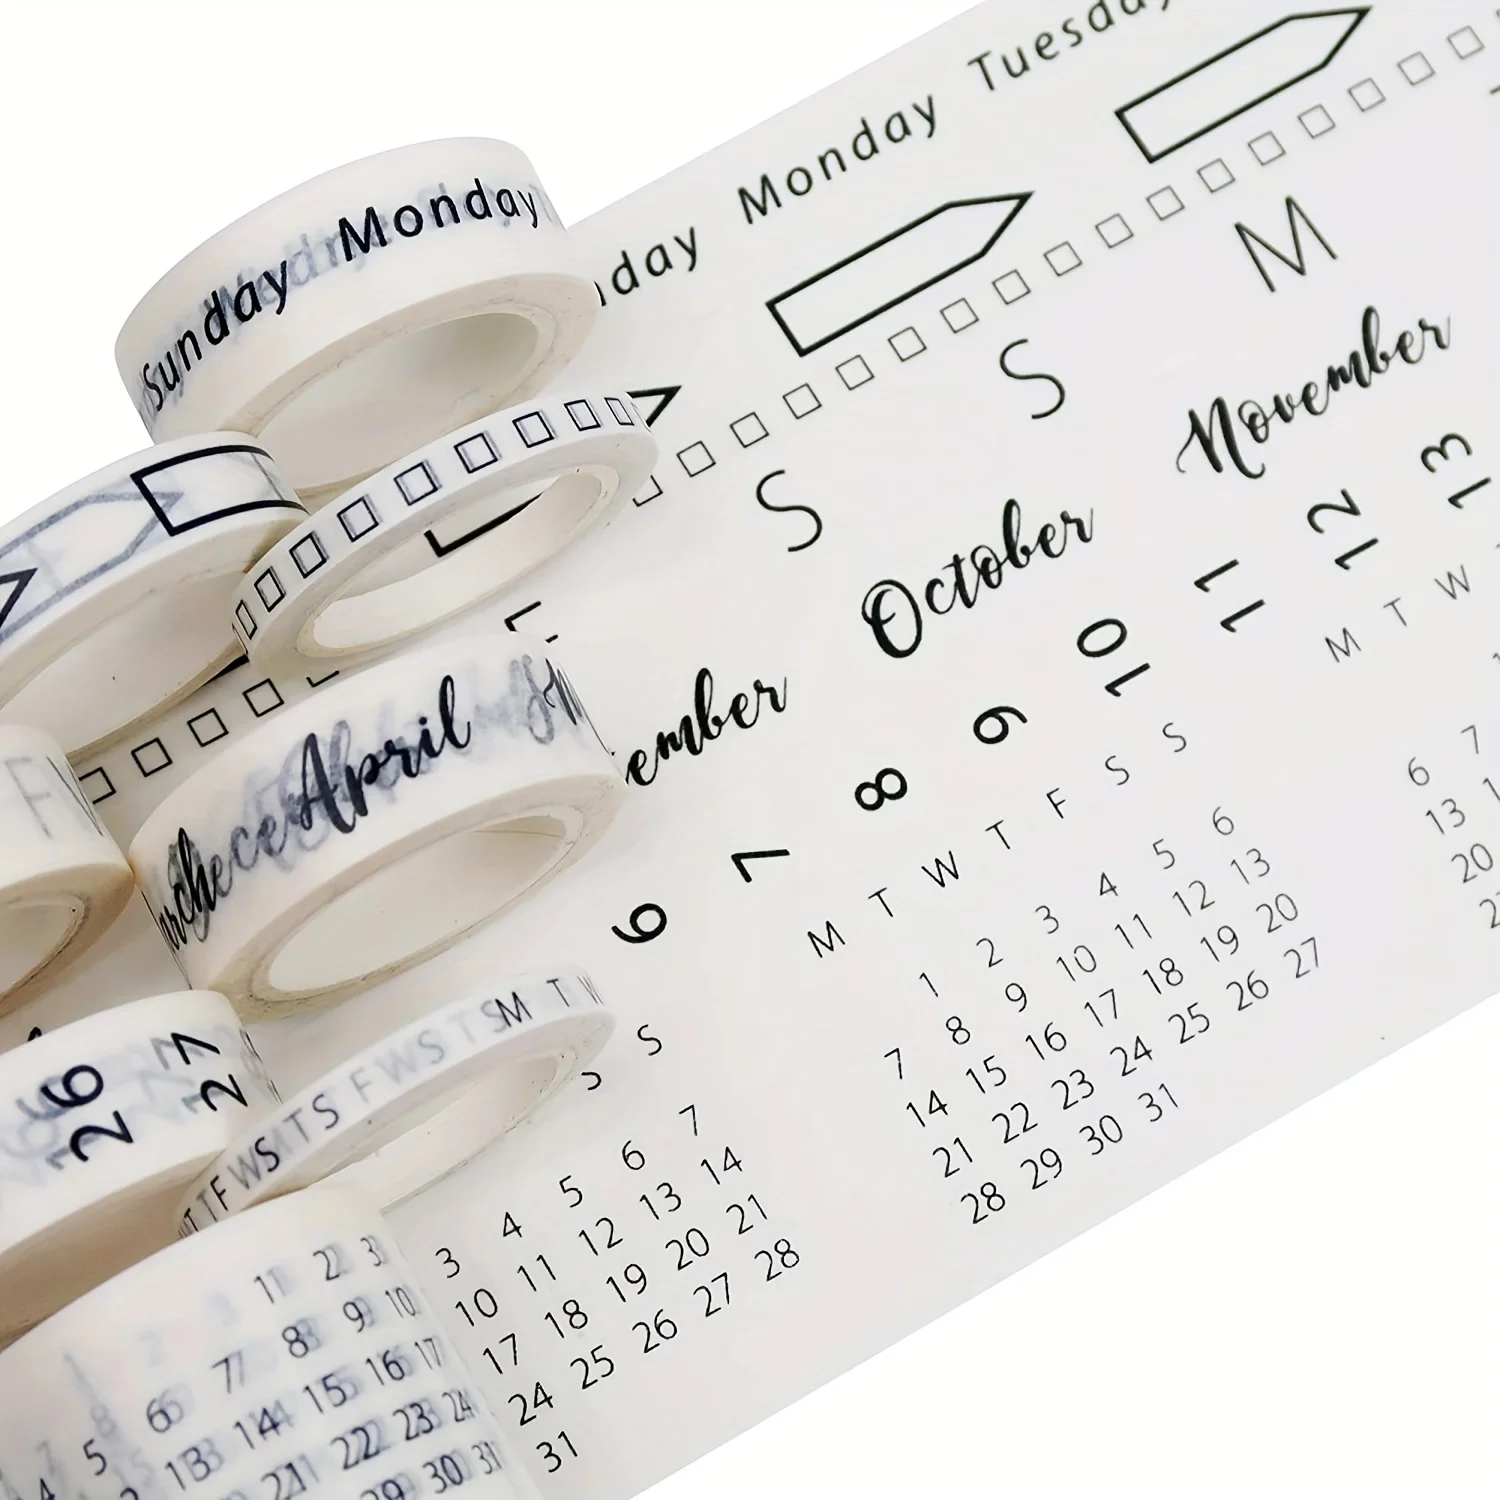 nday Monday Tuesday
S S M
ember October November
6 7 8 9 10 11 12 13
S M T W T F S S M T W
1 2 3 4 5 6
3 4 5 6 7
7 8 9 10 11 12 13
10 11 12 13 14
14 15 16 17 18 19 20
17 18 19 20 21
21 22 23 24 25 26 27
24 25 26 27 28
28 29 30 31
31
6 7
13
20
Sunday Monday
April
26 27
F W S T S M T W
T F W S T S
1 2 3
6 7 8 9 10
5
13 14 15 16 17
21 22 23 24
29 30 31